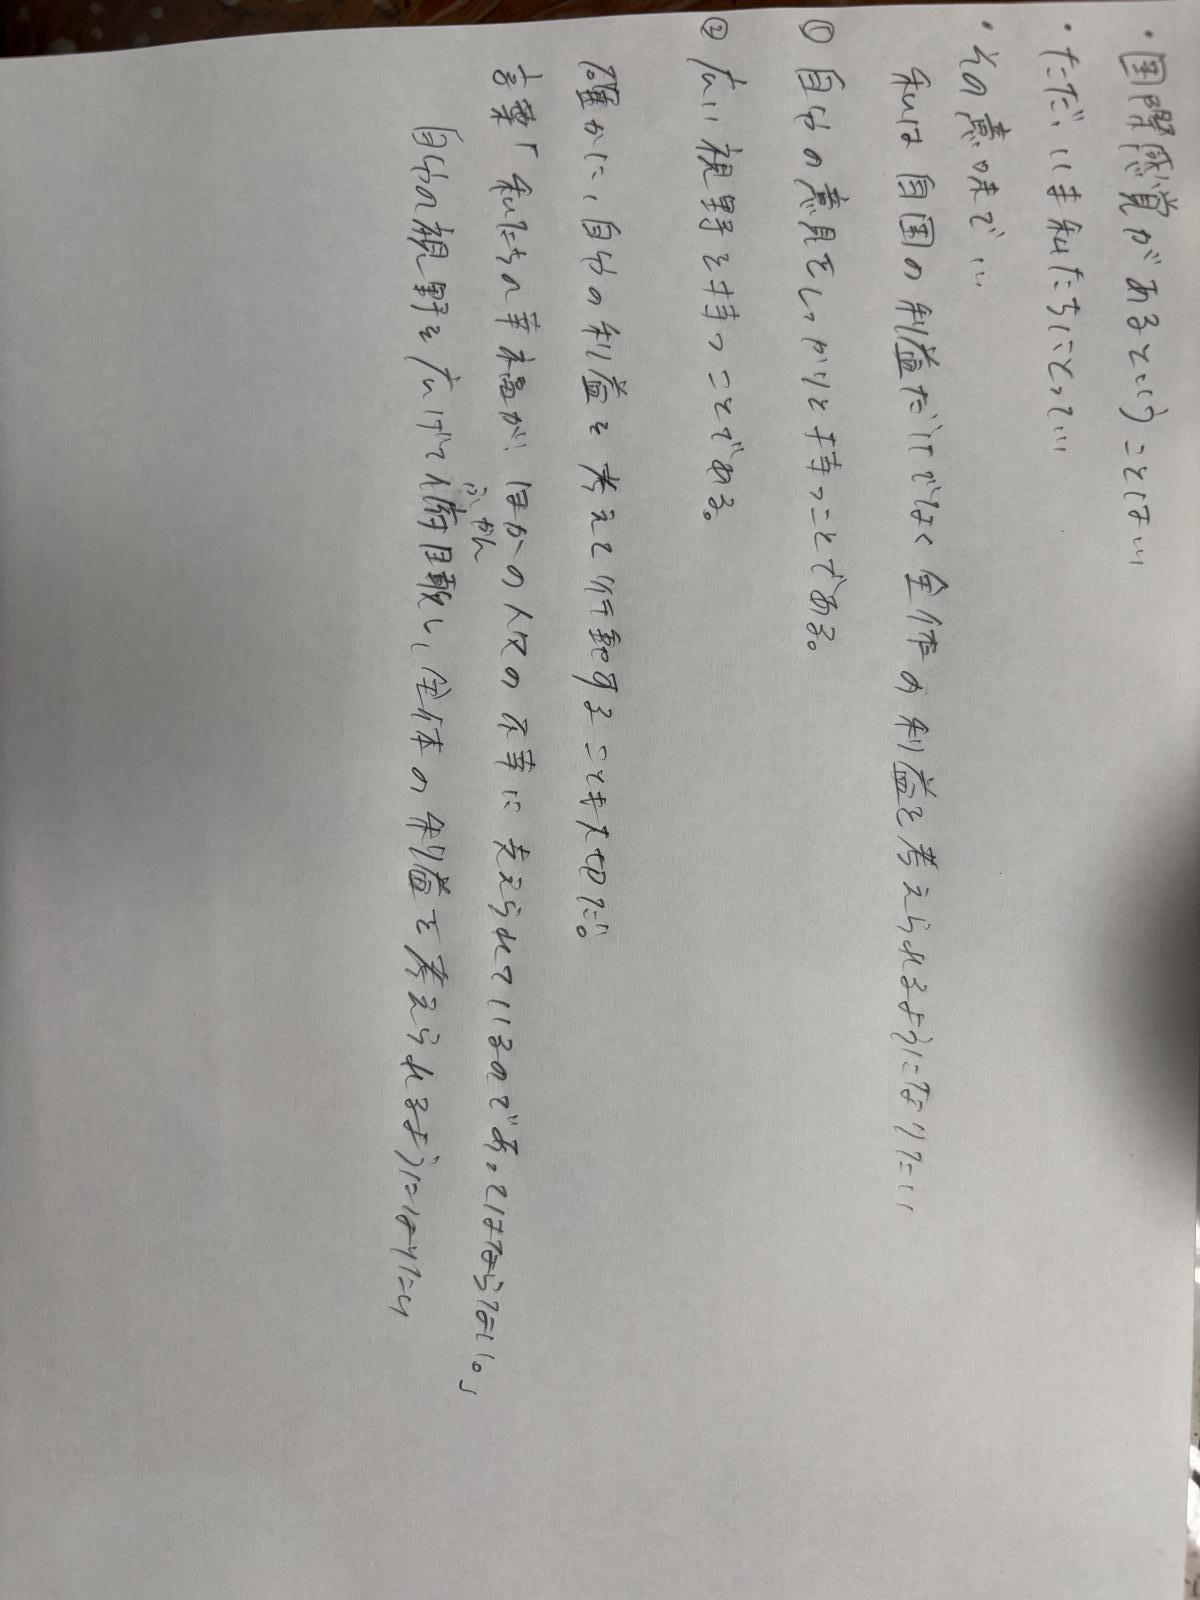 ・国際感覚があるということは…
・ただ、いま私たちにとって…
・その意味で…
私は自国の利益だけでなく全体の利益を考えられるようになりたい
① 自分の意見をしっかりと持つことである。
② 広い視野を持つことである。
確かに、自分の利益を考えて行動することも大切だ。
言葉「私たちの幸福が、ほかの人々の不幸に支えられているのであってはならない。」
自分の視野を広げて俯瞰し、全体の利益を考えられるようになりたい
ふかん